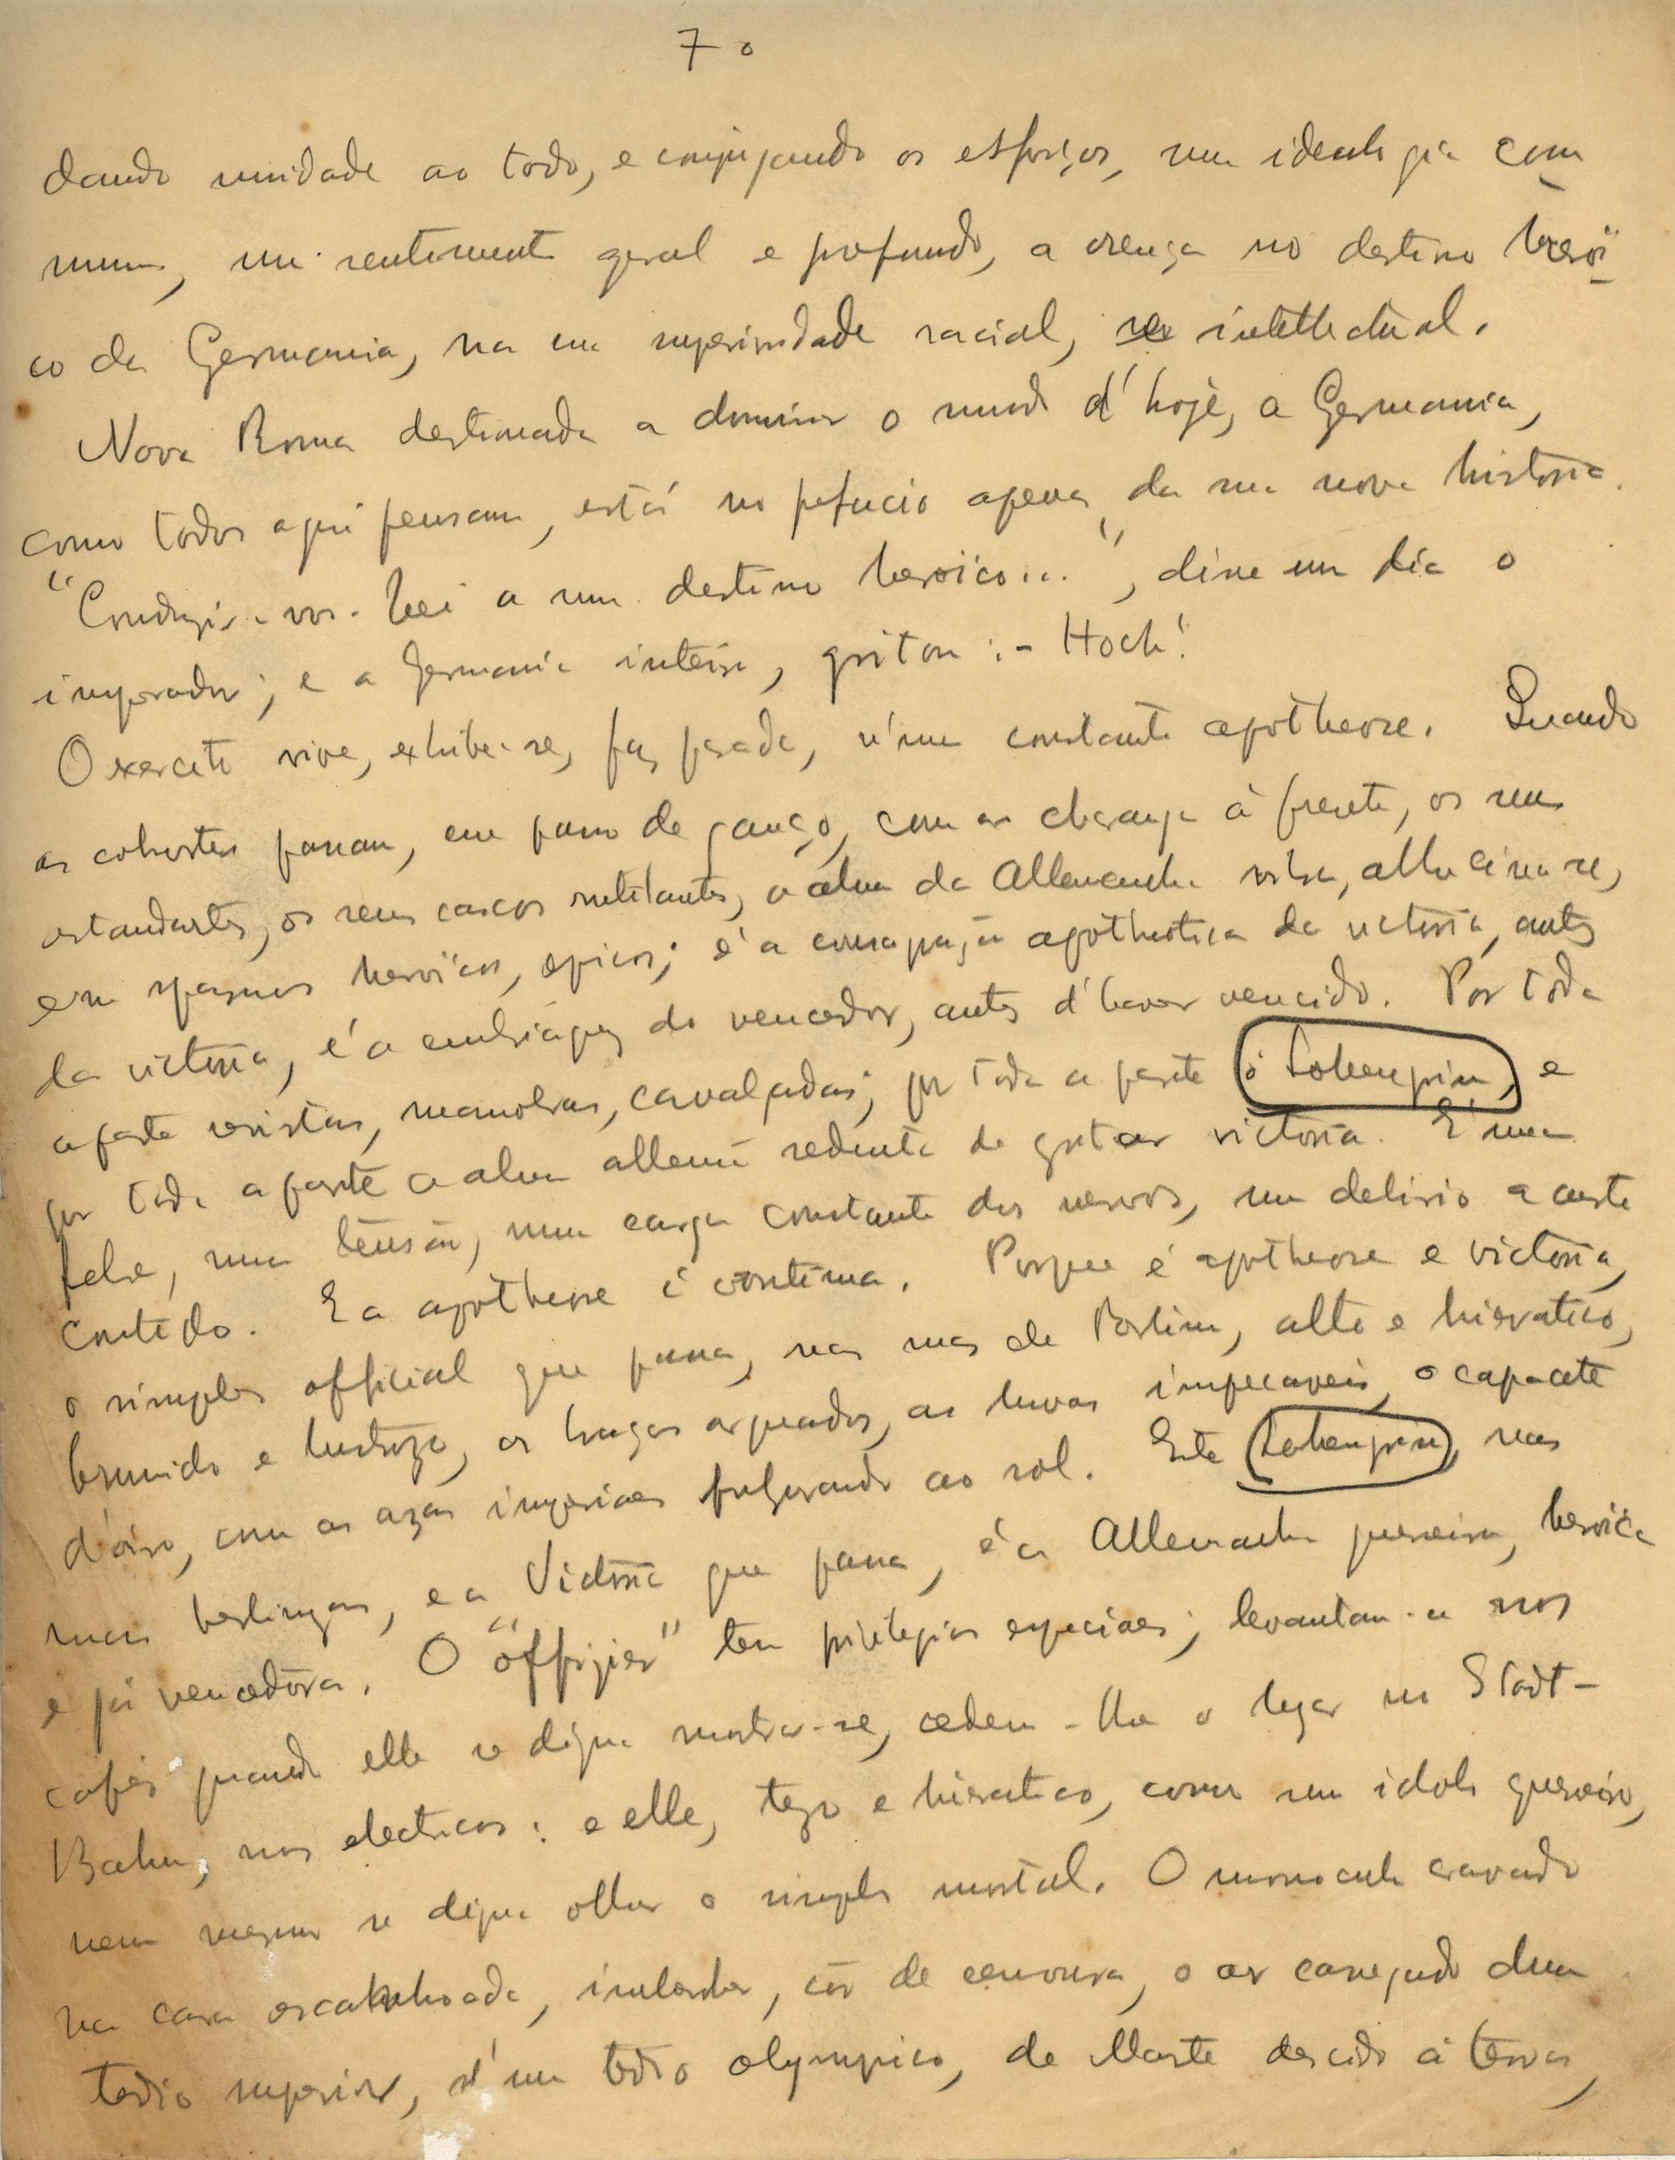 70
dando unidade ao todo, e conjugando os esforços, uma ideologia com
mum, um sentimento geral e profundo, a crença no destino heroï
co da Germania, na sua superioridade racial, intellectual.
Nova Roma destinada a dominar o mundo d'hoje, a Germania,
como todos aqui pensam, está no prefacio apenas da sua nova historia.
"Conduzir-vos-hei a um destino heroïco...", disse um dia o
imperador; e a Germania inteira, gritou: - Hoch!
O exercito vive, exhibe-se, faz parada, n'uma constante apotheose. Quando
as cohortes passam, em passo de ganço, com as charanga à frente, os seus
estandartes, os seus cascos rutilantes, a alma da Allemanha vibra, allucina-se,
em espasmos heroïcos, epicos; é a consagração apotheotica da victoria, antes
da victoria, é a embriaguez do vencedor, antes d'haver vencido. Por toda
a parte revistas, manobras, cavalgadas; por toda a parte o Lohengrin, e
por toda a parte a alma allemã sedenta de gritar victoria. É uma
febre, uma tensão, uma carga constante dos nervos, um delirio a custo
contido. E a apotheose é continua. Porque é apotheose e victoria,
o simples official que passa, nas ruas de Berlim, alto e hieratico,
brunido e lustrozo, os braços arqueados, as luvas impecaveis, o capacete
d'oiro, com as azas imperiaes fulgurando ao sol. Este Lohengrin, nas
ruas berlinezas, é a Victoria que passa, é a Allemanha guerreira, heroïca
e já vencedora. O "offizier" tem privilegios especiaes; levantam-se nos
cafés quando elle se digna mostrar-se, cedem-lhe o logar no Stadt-
Bahn, nos electricos: e elle, tezo e hieratico, como um idolo guerreiro,
nem mesmo se digna olhar o simples mortal. O monoculo cravado
na cara escanhoada, imberbe, côr de cenoura, o ar carregado dum
tedio superior, d'um tedio olympico, de Marte descido à terra,